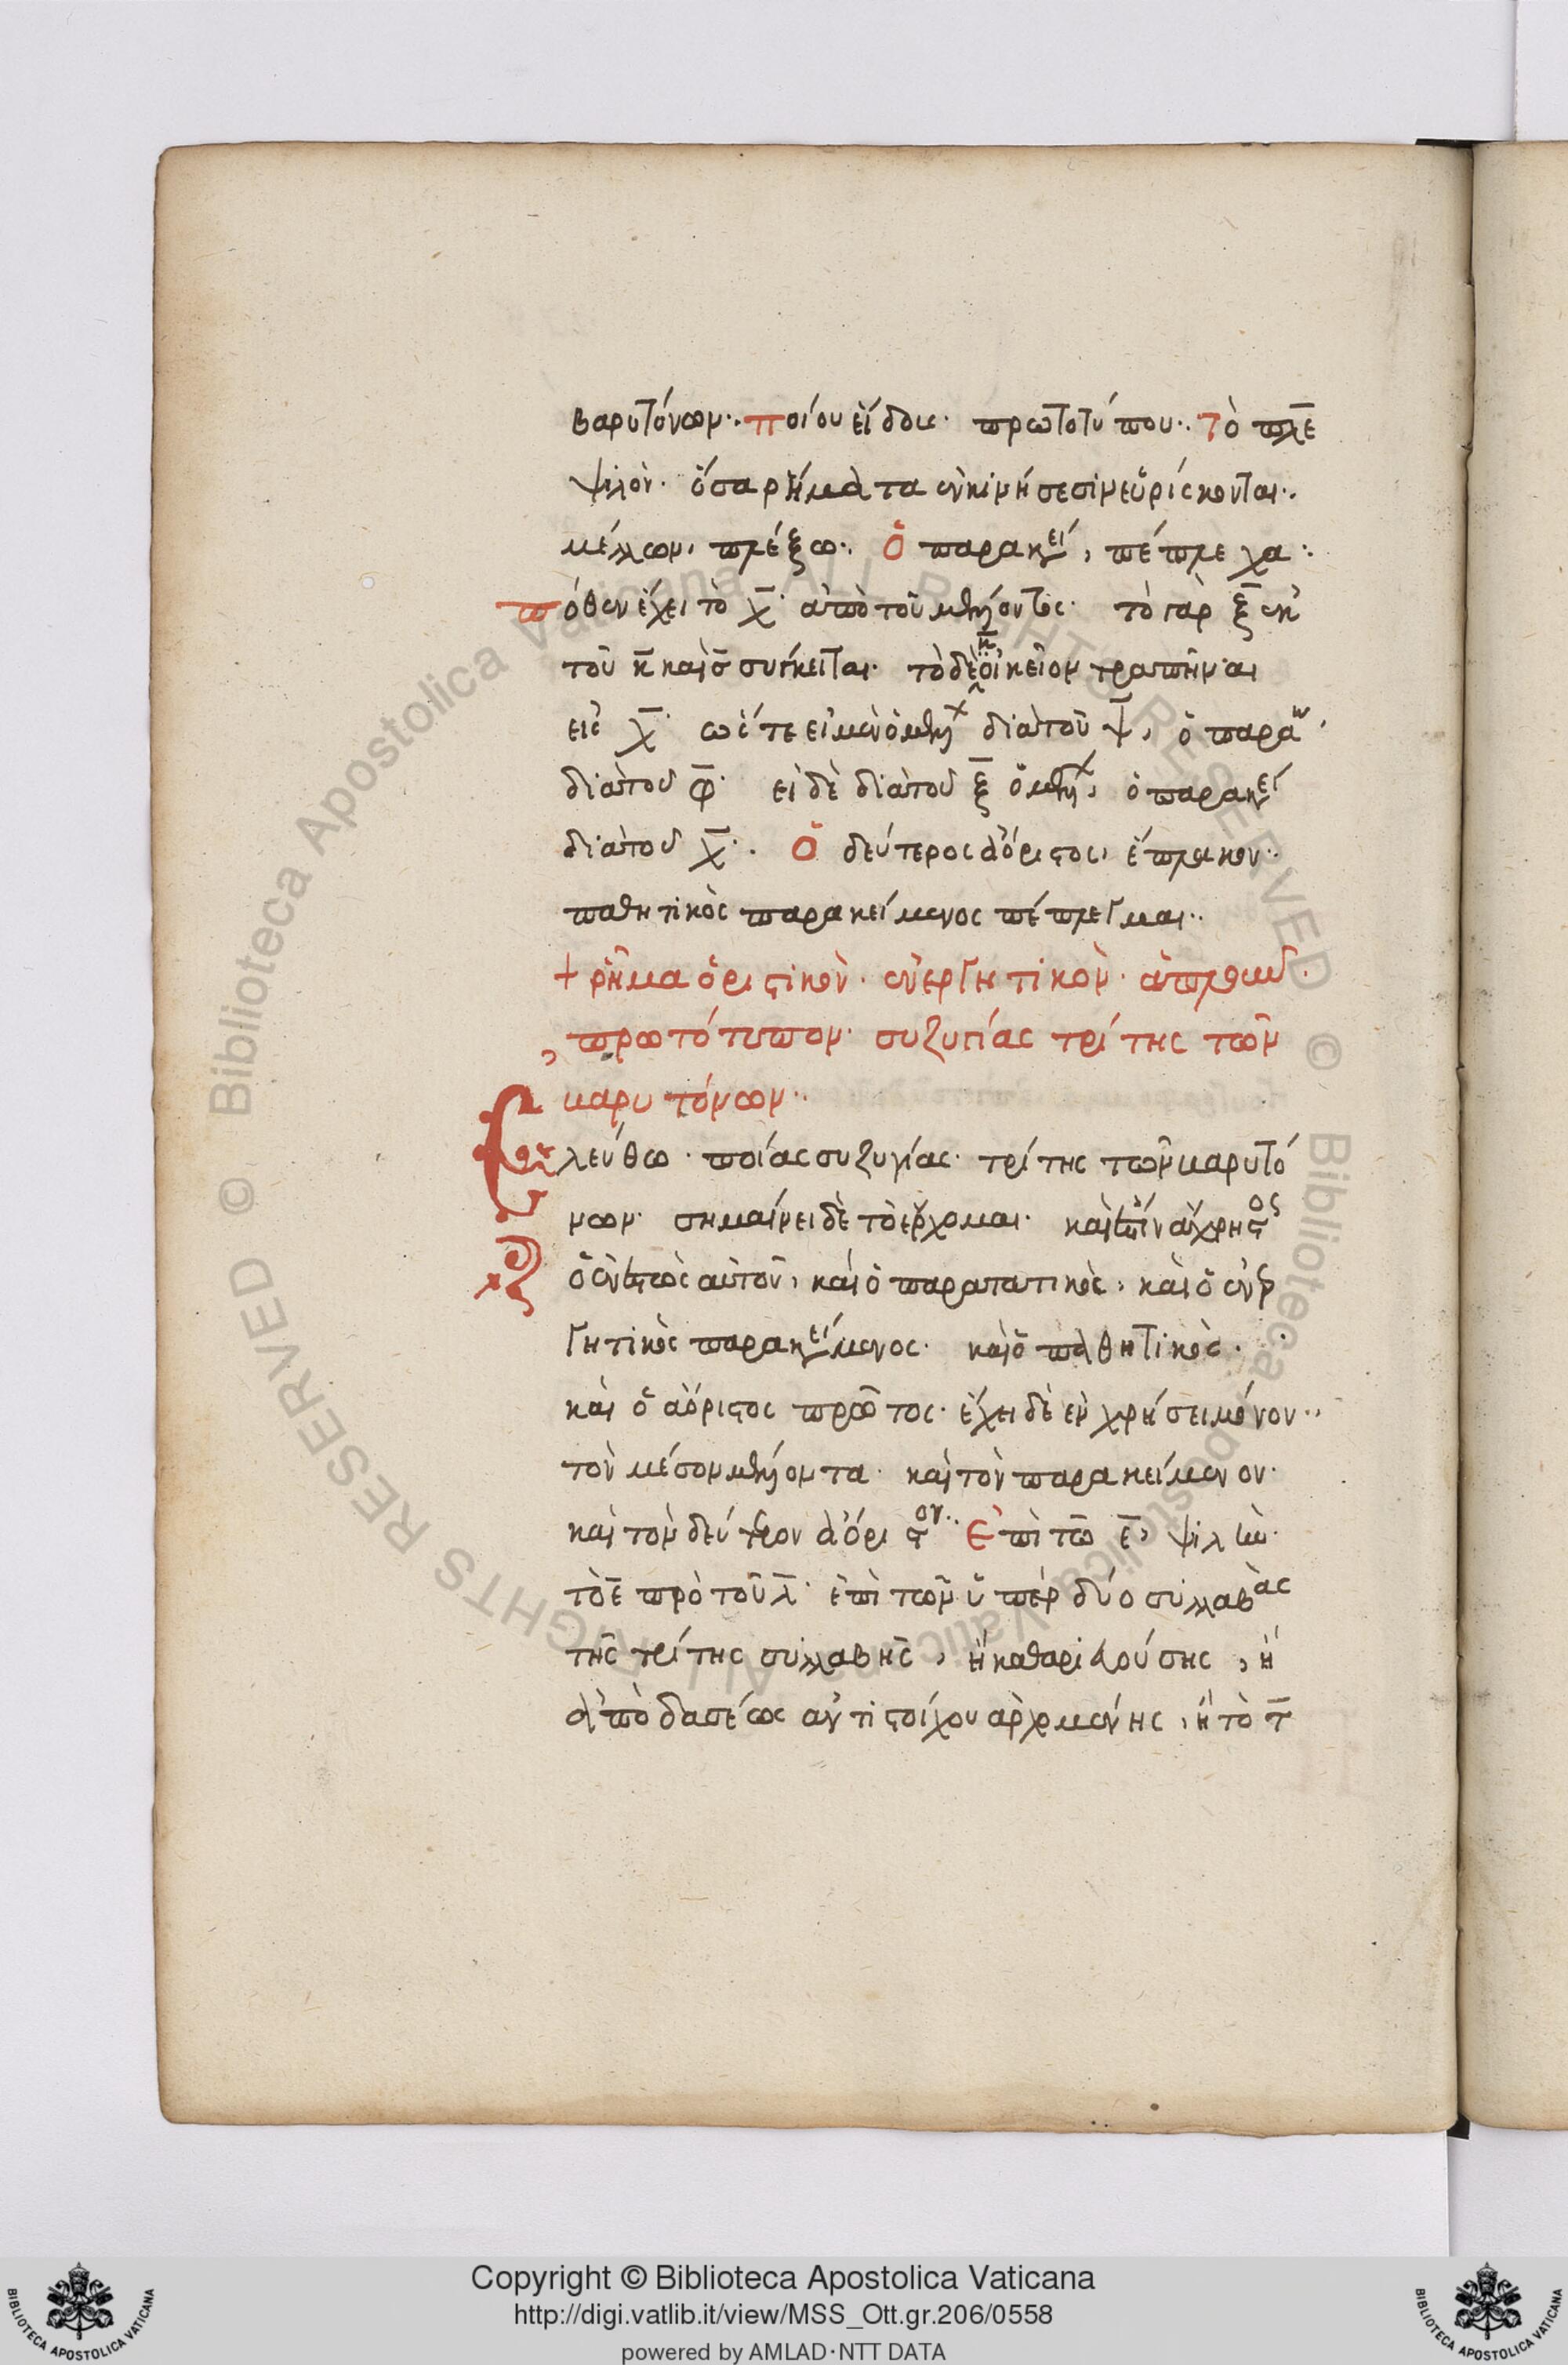 βαρυτόνων· ποίου εἴδους· πρωτοτύπου· τὸ πλε
ψιλόν· ὅσα ῥήματα ἐν κινήσεσιν εὑρίσκονται·
μέλλων, πλέξω· ὁ παρακεί, πέπλεχα·
πόθεν ἔχει τὸ χ· ἀπὸ τοῦ μέλλοντος· τὸ γὰρ ξ ἐκ
τοῦ κ καὶ σ σύγκειται· τὸ δὲ κ οἰκεῖον τραπῆναι
εἰς χ· ὥστε εἰ μὲν ὁ μέλλ διὰ τοῦ ψ, ὁ παρα
διὰ τοῦ φ· εἰ δὲ διὰ τοῦ ξ ὁ μέλλ, ὁ παρακεί
διὰ τοῦ χ· ὁ δεύτερος ἀόριστος, ἔπλακον·
παθητικὸς παρακείμενος πέπλεγμαι·
+ ῥῆμα ὁριστικὸν· ἐνεργητικὸν· ἁπλοῦν·
πρωτότυπον· συζυγίας τρίτης τῶν
βαρυτόνων·
Ἐλεύθω· ποίας συζυγίας· τρίτης τῶν βαρυτό
νων· σημαίνει δὲ τὸ ἔρχομαι· καὶ ἔστιν ἄχρηστος
ὁ ἐνεστὼς αὐτοῦ, καὶ ὁ παρατατικὸς, καὶ ὁ ἐνερ
γητικὸς παρακείμενος· καὶ ὁ παθητικὸς·
καὶ ὁ ἀόριστος πρῶτος· ἔχει δὲ ἐν χρήσει μόνον·
τὸν μέσον μέλλοντα· καὶ τὸν παρακείμενον·
καὶ τὸν δεύτερον ἀόριστον· Ἐπὶ τῶ ε, ψιλὸν·
τὸ ε πρὸ τοῦ λ· ἐπὶ τῶν ὑπὲρ δύο συλλαβὰς
τῆς τρίτης συλλαβῆς, ἢ καθαρευούσης, ἢ
ἀπὸ δασέως ἀντιστοίχου ἀρχομένης, ἢ τὸ τ
Copyright © Biblioteca Apostolica Vaticana
http://digi.vatlib.it/view/MSS_Ott.gr.206/0558
powered by AMLAD·NTT DATA